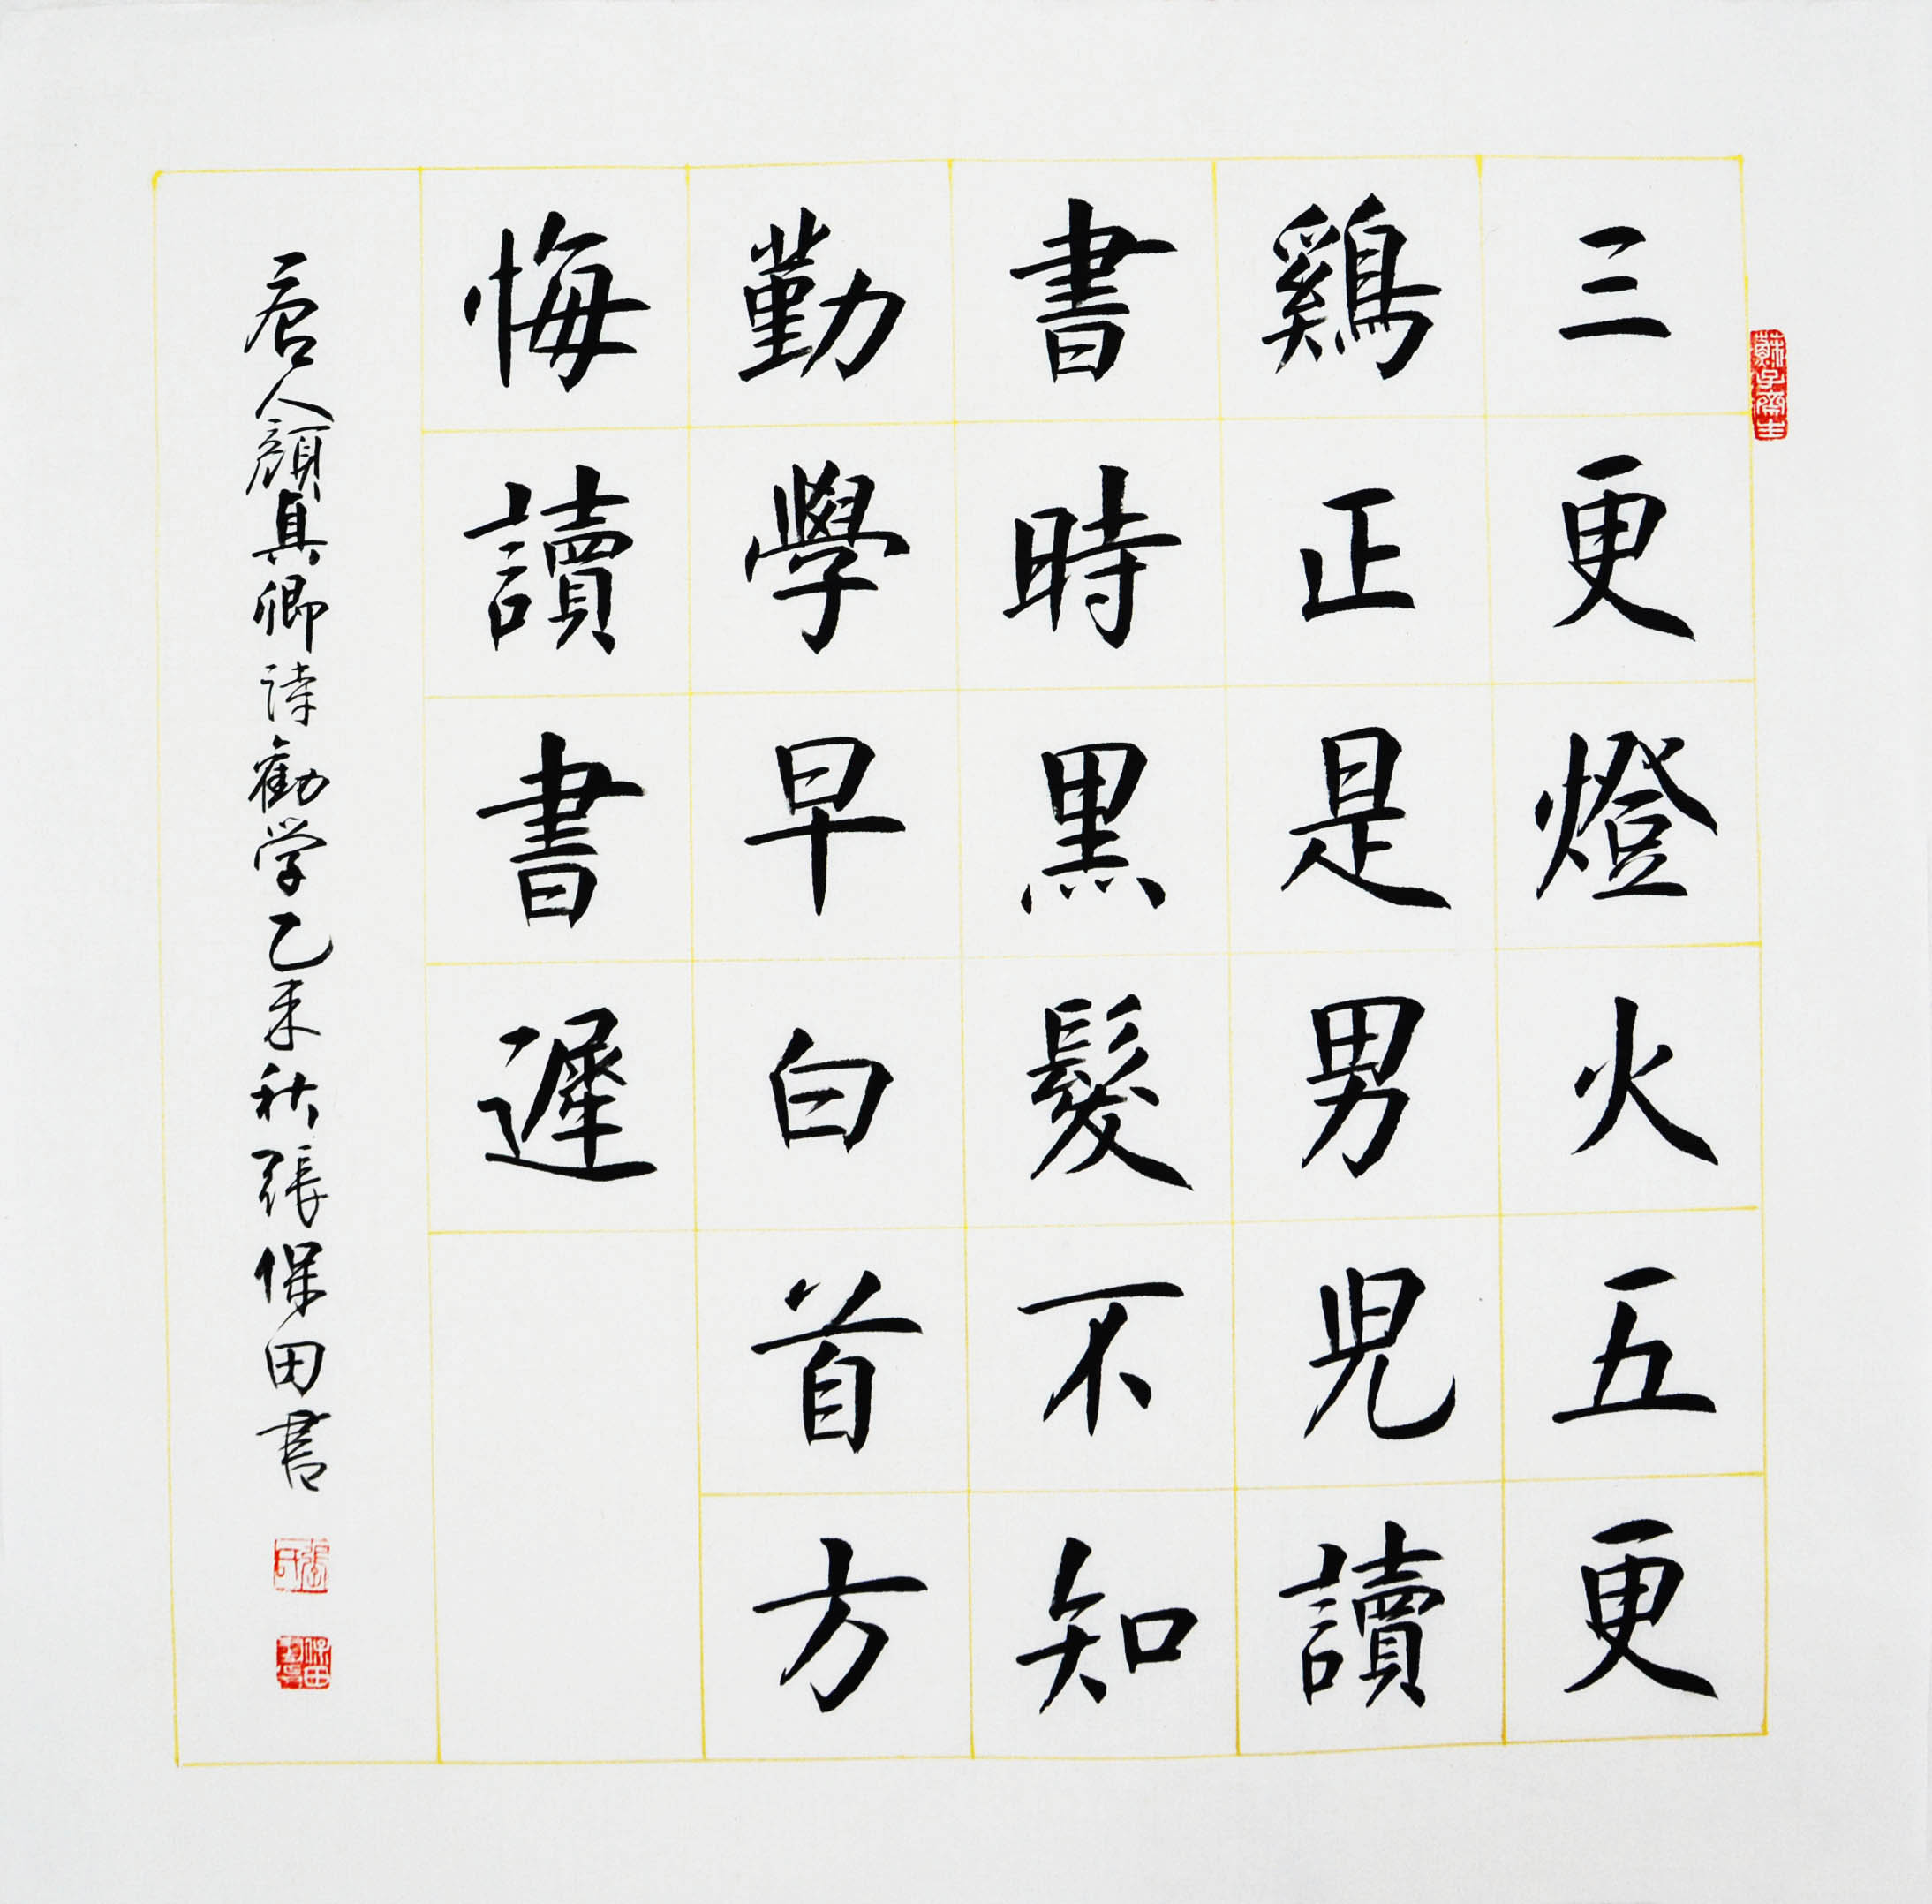 三更燈火五更
鷄正是男兒讀
書時黑髮不知
勤學早白首方
悔讀書遲
唐人顏真卿詩勸学乙未秋張保田書